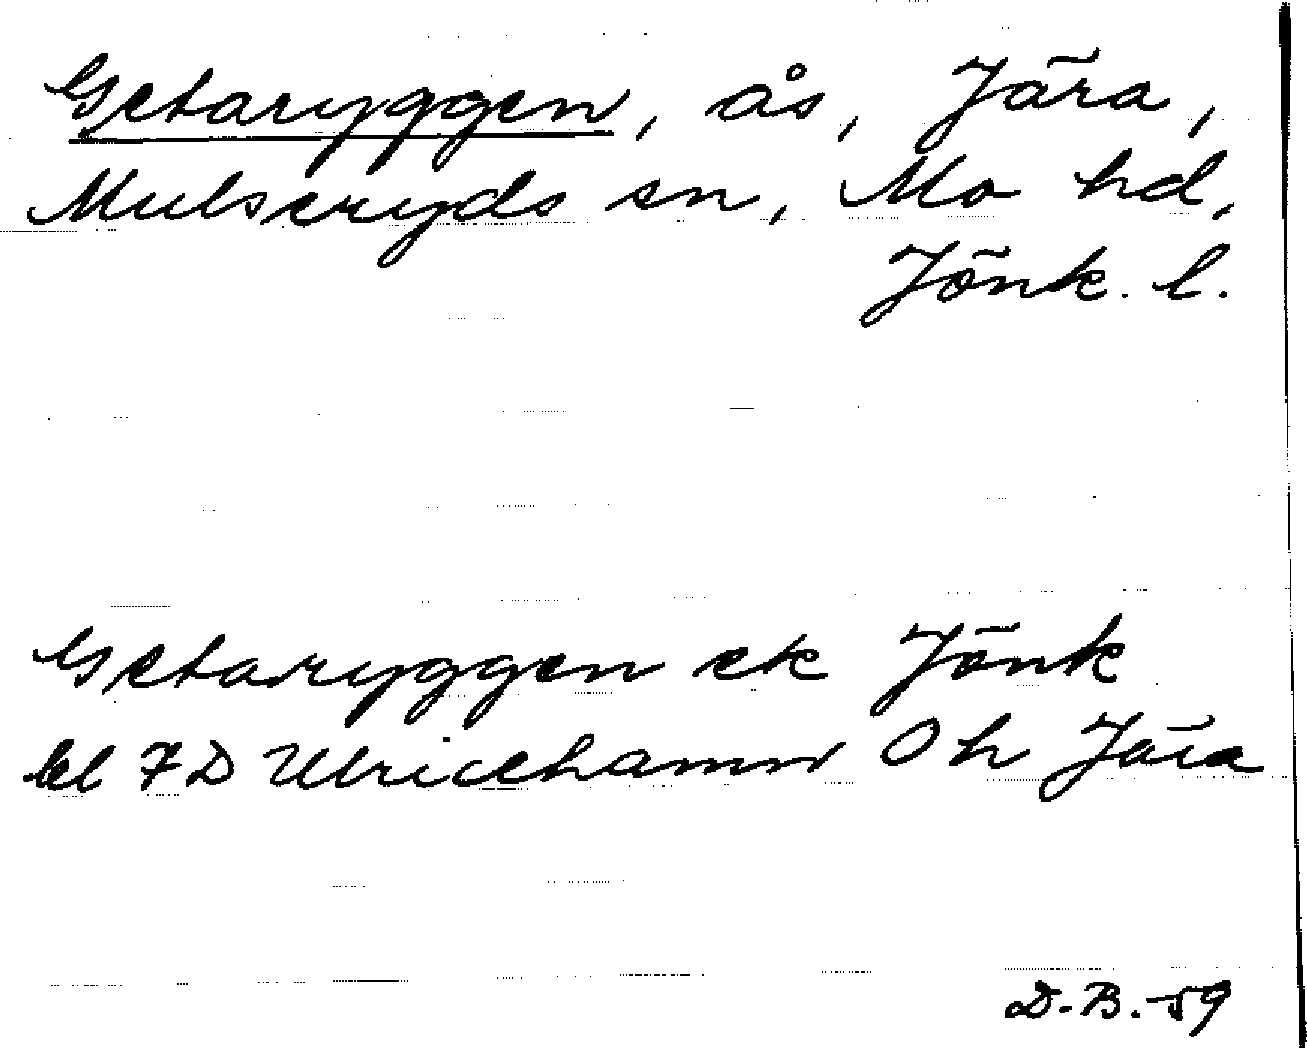 Getaryggen, ås, Jära,
Mulseryds sn, Mo hd,
Jönk. l.
Getaryggen ek Jönk
bl 7 D Ulricehamn Ö h Jära
D.B.-59